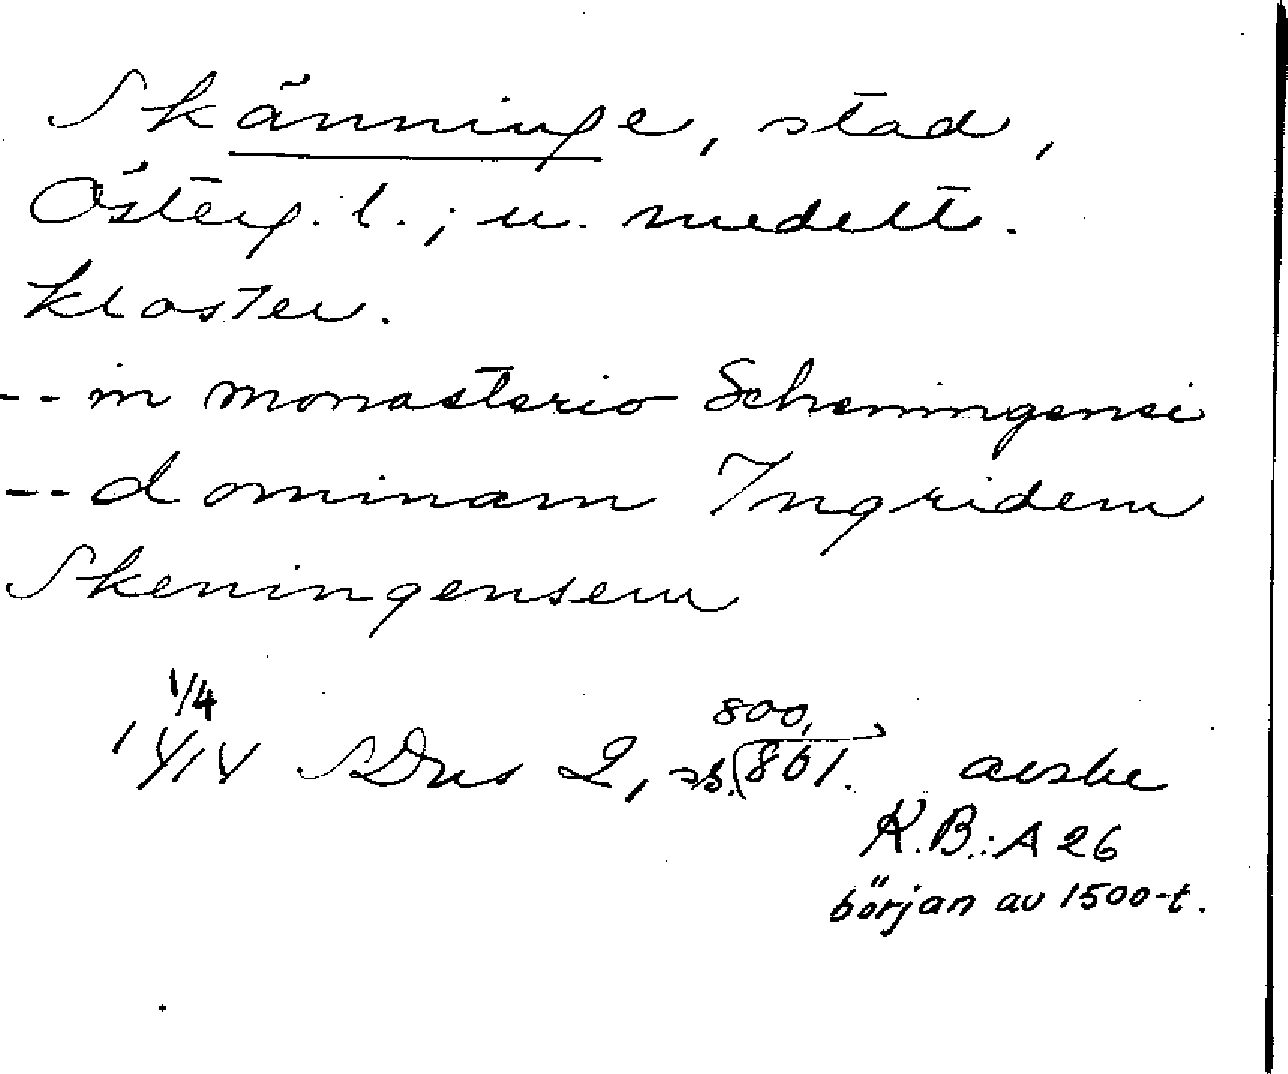 Skänninge, stad,
Österg. l.; u. medelt.
kloster.
-- in monasterio Scheningensi
-- dominam Ingridem
Skeningensem
1/4
SDns 2, sb. (861.
800,
avskr
K.B.: A 26
början av 1500-t.